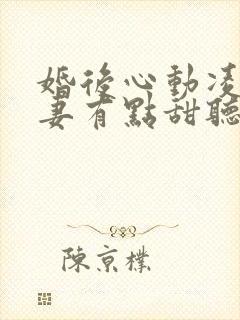 婚後心動凌
妻有點甜聽
陳京襟